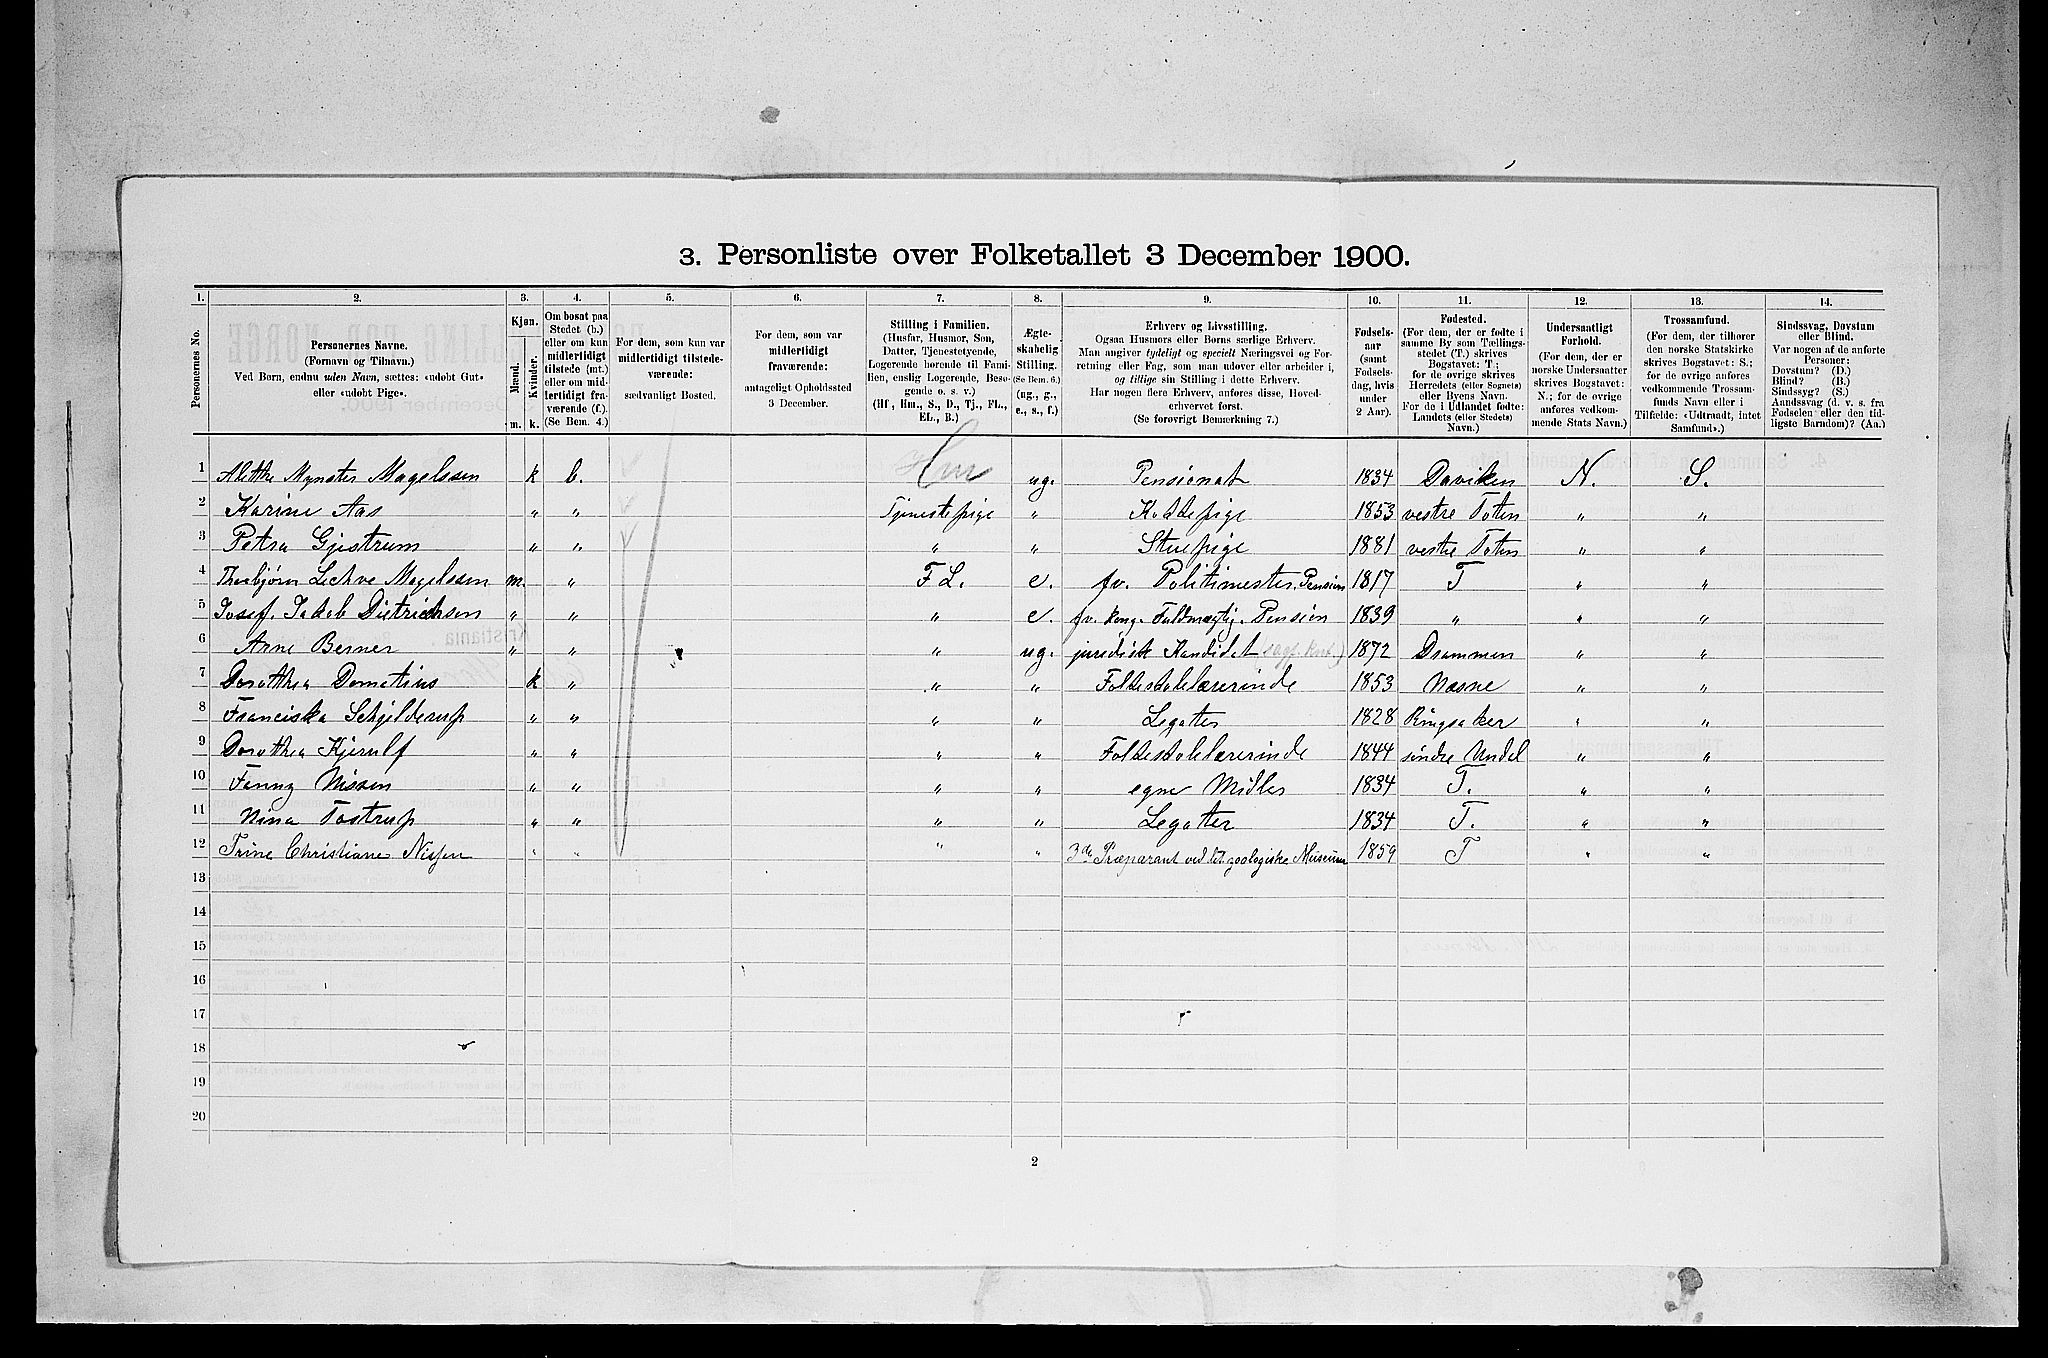 3. Personliste over Folketallet 3 December 1900.
1. 2. 3. 4. 5. 6. 7. 8. 9. 10. 11. 12. 13. 14.
Personernes No.
Personernes Navne.
(Fornavn og Tilnavn.)
Ved Børn, endnu uden Navn, sættes: «udøbt Gut»
eller «udøbt Pige».
Kjøn.
Mænd. Kvinder.
m. k.
Om bosat paa
Stedet (b.)
eller om kun
midlertidigt
tilstede (mt.)
eller om mid-
lertidigt fra-
værende (f.).
(Se Bem. 4.)
For dem, som kun var
midlertidigt tilstede-
værende:
sædvanligt Bosted.
For dem, som var
midlertidigt
fraværende:
antageligt Opholdssted
3 December.
Stilling i Familien.
(Husfar, Husmor, Søn,
Datter, Tjenestetyende,
Logerende hørende til Fami-
lien, enslig Logerende, Besø-
gende o. s. v.)
(Hf, Hm., S., D., Tj., FL.,
EL., B.)
Ægte-
skabelig
Stilling.
(Se Bem. 6.)
(ug., g.,
e., s., f.)
Erhverv og Livsstilling.
Ogsaa Husmors eller Børns særlige Erhverv.
Man angiver tydeligt og specielt Næringsvei og For-
retning eller Fag, som man udøver eller arbeider i,
og tillige sin Stilling i dette Erhverv.
Har nogen flere Erhverv, anføres disse, Hoved-
erhvervet først.
(Se forøvrigt Bemerkning 7.)
Fødsels-
aar
(samt
Fødsels-
dag, hvis
under
2 Aar).
Fødested.
(For dem, der er fødte i
samme By som Tællings-
stedet (T.) skrives
Bogstavet: T.;
for de øvrige skrives
Herredets (eller Sognets)
eller Byens Navn.
For de i Udlandet fødte:
Landets (eller Stedets)
Navn.)
Undersaatligt
Forhold.
(For dem, der er
norske Undersaatter
skrives Bogstavet:
N.; for de øvrige
anføres vedkom-
mende Stats Navn.)
Trossamfund.
(For dem, der tilhører
den norske Statskirke
skrives Bogstavet: S.;
for de øvrige anføres
vedkommende Trossam-
funds Navn eller i
Tilfælde: «Udtraadt, intet
Samfund».)
Sindssvag, Døvstum
eller Blind.
Var nogen af de anførte
Personer:
Døvstum? (D.)
Blind? (B.)
Sindssyg? (S.)
Aandssvag (d. v. s. fra
Fødselen eller den tid-
ligste Barndom)? (Aa.)
1 Alethe Mynster Magelssen k b. Hm ug. Pensionat 1834 Daviken N. S.
2 Karine Aas " " Tjenestepige " Kokkepige 1853 vestre Toten " "
3 Petra Gjestrum " " " " Stuepige 1881 vestre Toten " "
4 Thorbjørn Magelssen m. " F L. e. fv. Politimester, Pension 1817 T " "
5 Josef. Jakob Dietrichson " " " e. fv. kong. Fuldmægtig. Pension 1839 " " "
6 Arne Berner " " " ug. juridisk Kandidat 1872 Drammen " "
7 Dorothea Dometius k " " " Folkeskolelærerinde 1853 Næsne " "
8 Franciska Schjelderup " " " " Legater 1828 Ringsaker " "
9 Dorothea Kjerulf " " " " Folkeskolelærerinde 1844 søndre Undal " "
10 Fanny Nissen " " " " egne Midler 1834 T. " "
11 Nina Tostrup " " " " Legater 1834 T. " "
12 Trine Christiane Nissen " " " " 3die Præparant ved det zoologiske Museum 1859 T " "
13
14
15
16
17
18
19
20
2